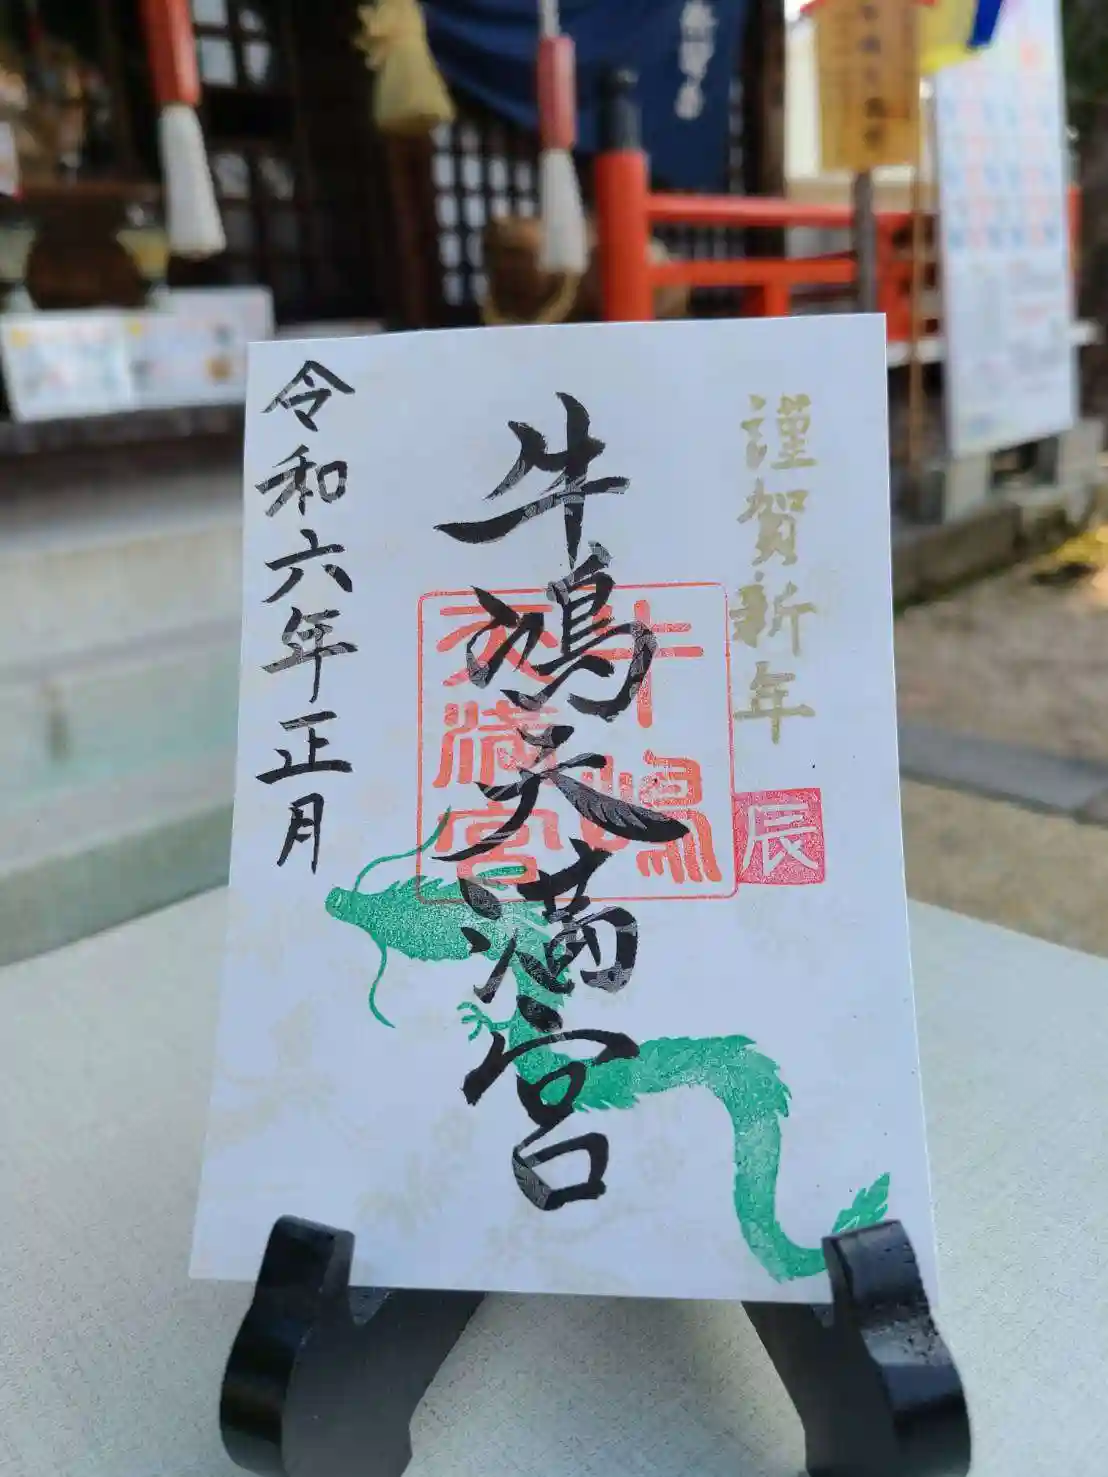 謹賀新年
辰
牛嶋天満宮
牛嶋
天満宮
令和六年正月